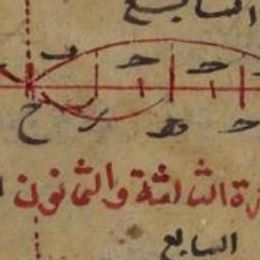 السابع
ح ح
ا ا
ح ر ه ح
رة الثالثة والثمانون
السابع